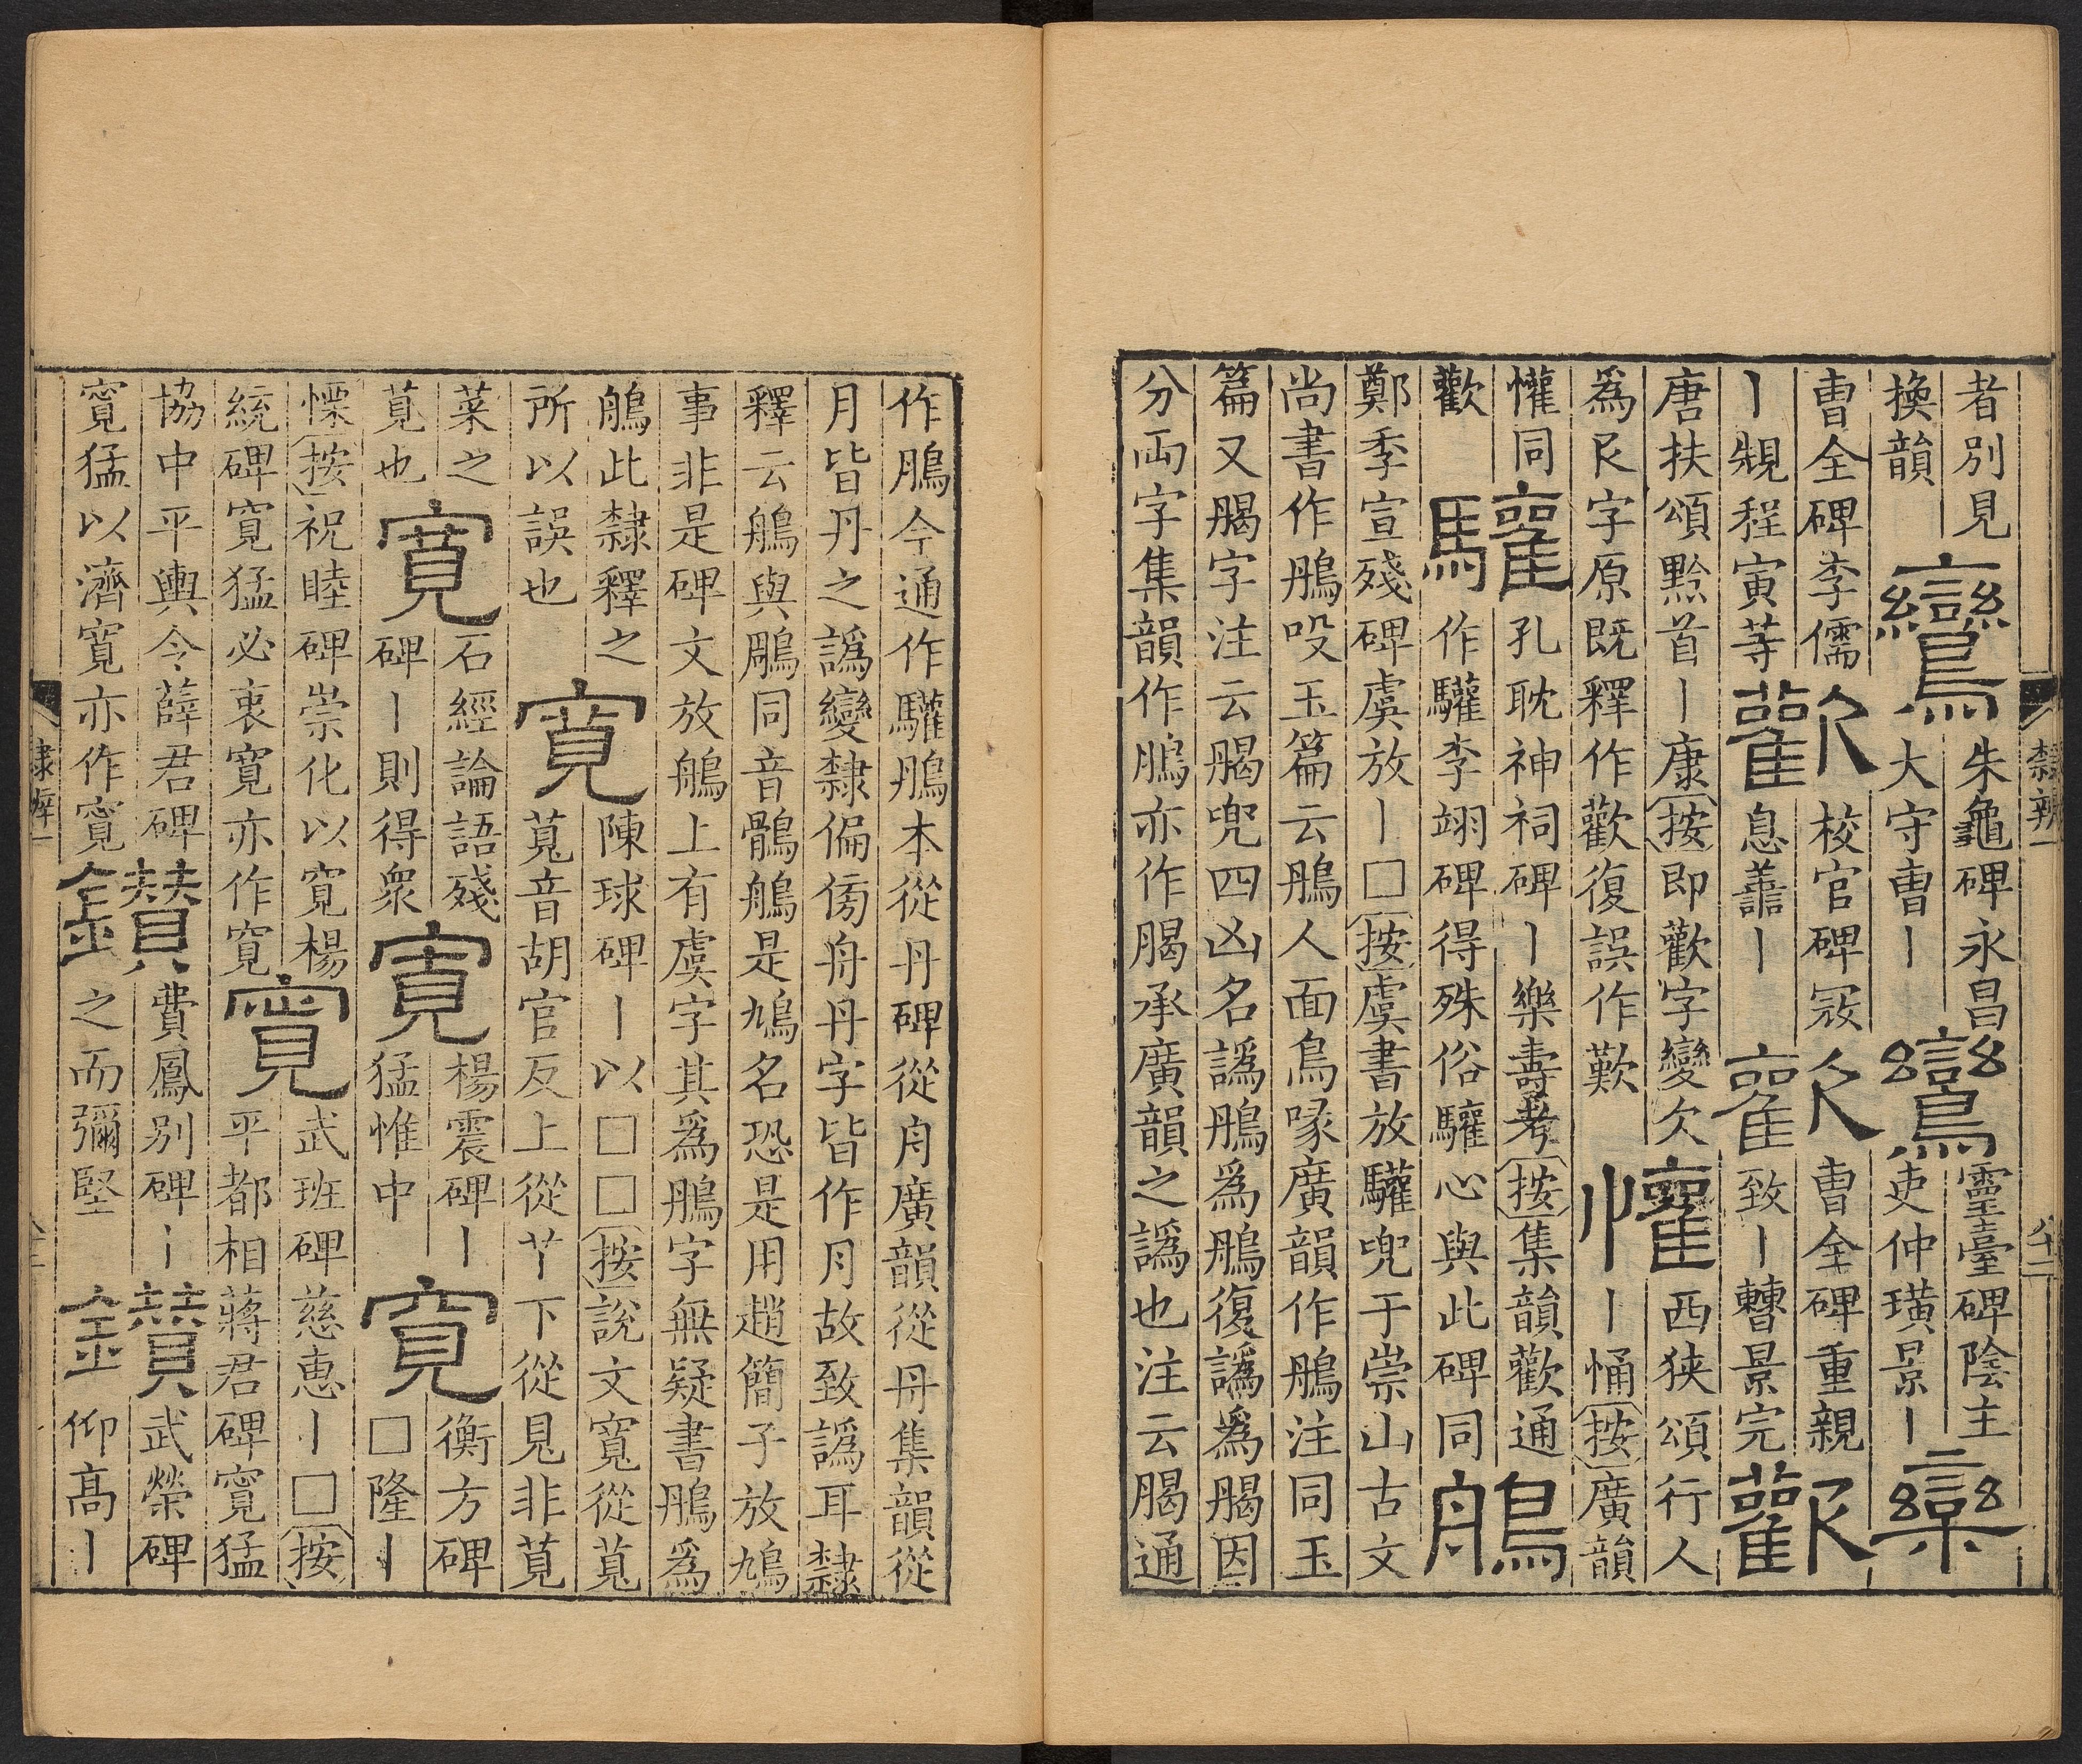 者別見
換韻
鸞
朱龜碑永昌
大守曹丨
鸞
靈臺碑陰主
吏仲璜景丨
欒
曹全碑李儒
丨規程寅等
歡
校官碑冣
息譱丨
歡
曹全碑重親
致丨轊景完
歡
唐扶頌黔首丨康按即歡字變欠
爲㠯字原既釋作歡復誤作歎
懽
西狹頌行人
丨悀按廣韻
懽同
歡
驩
孔耽神祠碑丨樂壽考按集韻歡通
作驩李翊碑得殊俗驩心與此碑同
鴅
鄭季宣殘碑虞放丨□按虞書放驩兜于崇山古文
尚書作鴅吺玉篇云鴅人面鳥喙廣韻作鵃注同玉
篇又䑽字注云䑽兜四凶名譌鴅爲鵃復譌爲䑽因
分兩字集韻作鴅亦作䑽承廣韻之譌也注云䑽通
隸辨一
八十二
作鴅今通作驩鴅本從丹碑從舟廣韻從丹集韻從
月皆丹之譌變隸偏傍舟丹字皆作月故致譌耳隸
釋云鵃與鵰同音鶻鵃是鳩名恐是用趙簡子放鳩
事非是碑文放鵃上有虞字其爲鴅字無疑書鴅爲
鵃此隸釋之
所以誤也
寬
陳球碑丨以□□按說文寬從萈
萈音胡官反上從丫下從見非莧
菜之
莧也
寬
石經論語殘
碑丨則得衆
寬
楊震碑丨
猛惟中
寬
衡方碑
□隆丨
慄按祝睦碑崇化以寬楊
統碑寬猛必衷寬亦作寬
寬
武班碑慈惠丨□按
平都相蔣君碑寬猛
協中平輿令薛君碑
寬猛以濟寬亦作寬
鑽
費鳳別碑丨
之而彌堅
鑽
武榮碑
仰高丨
隸辨一